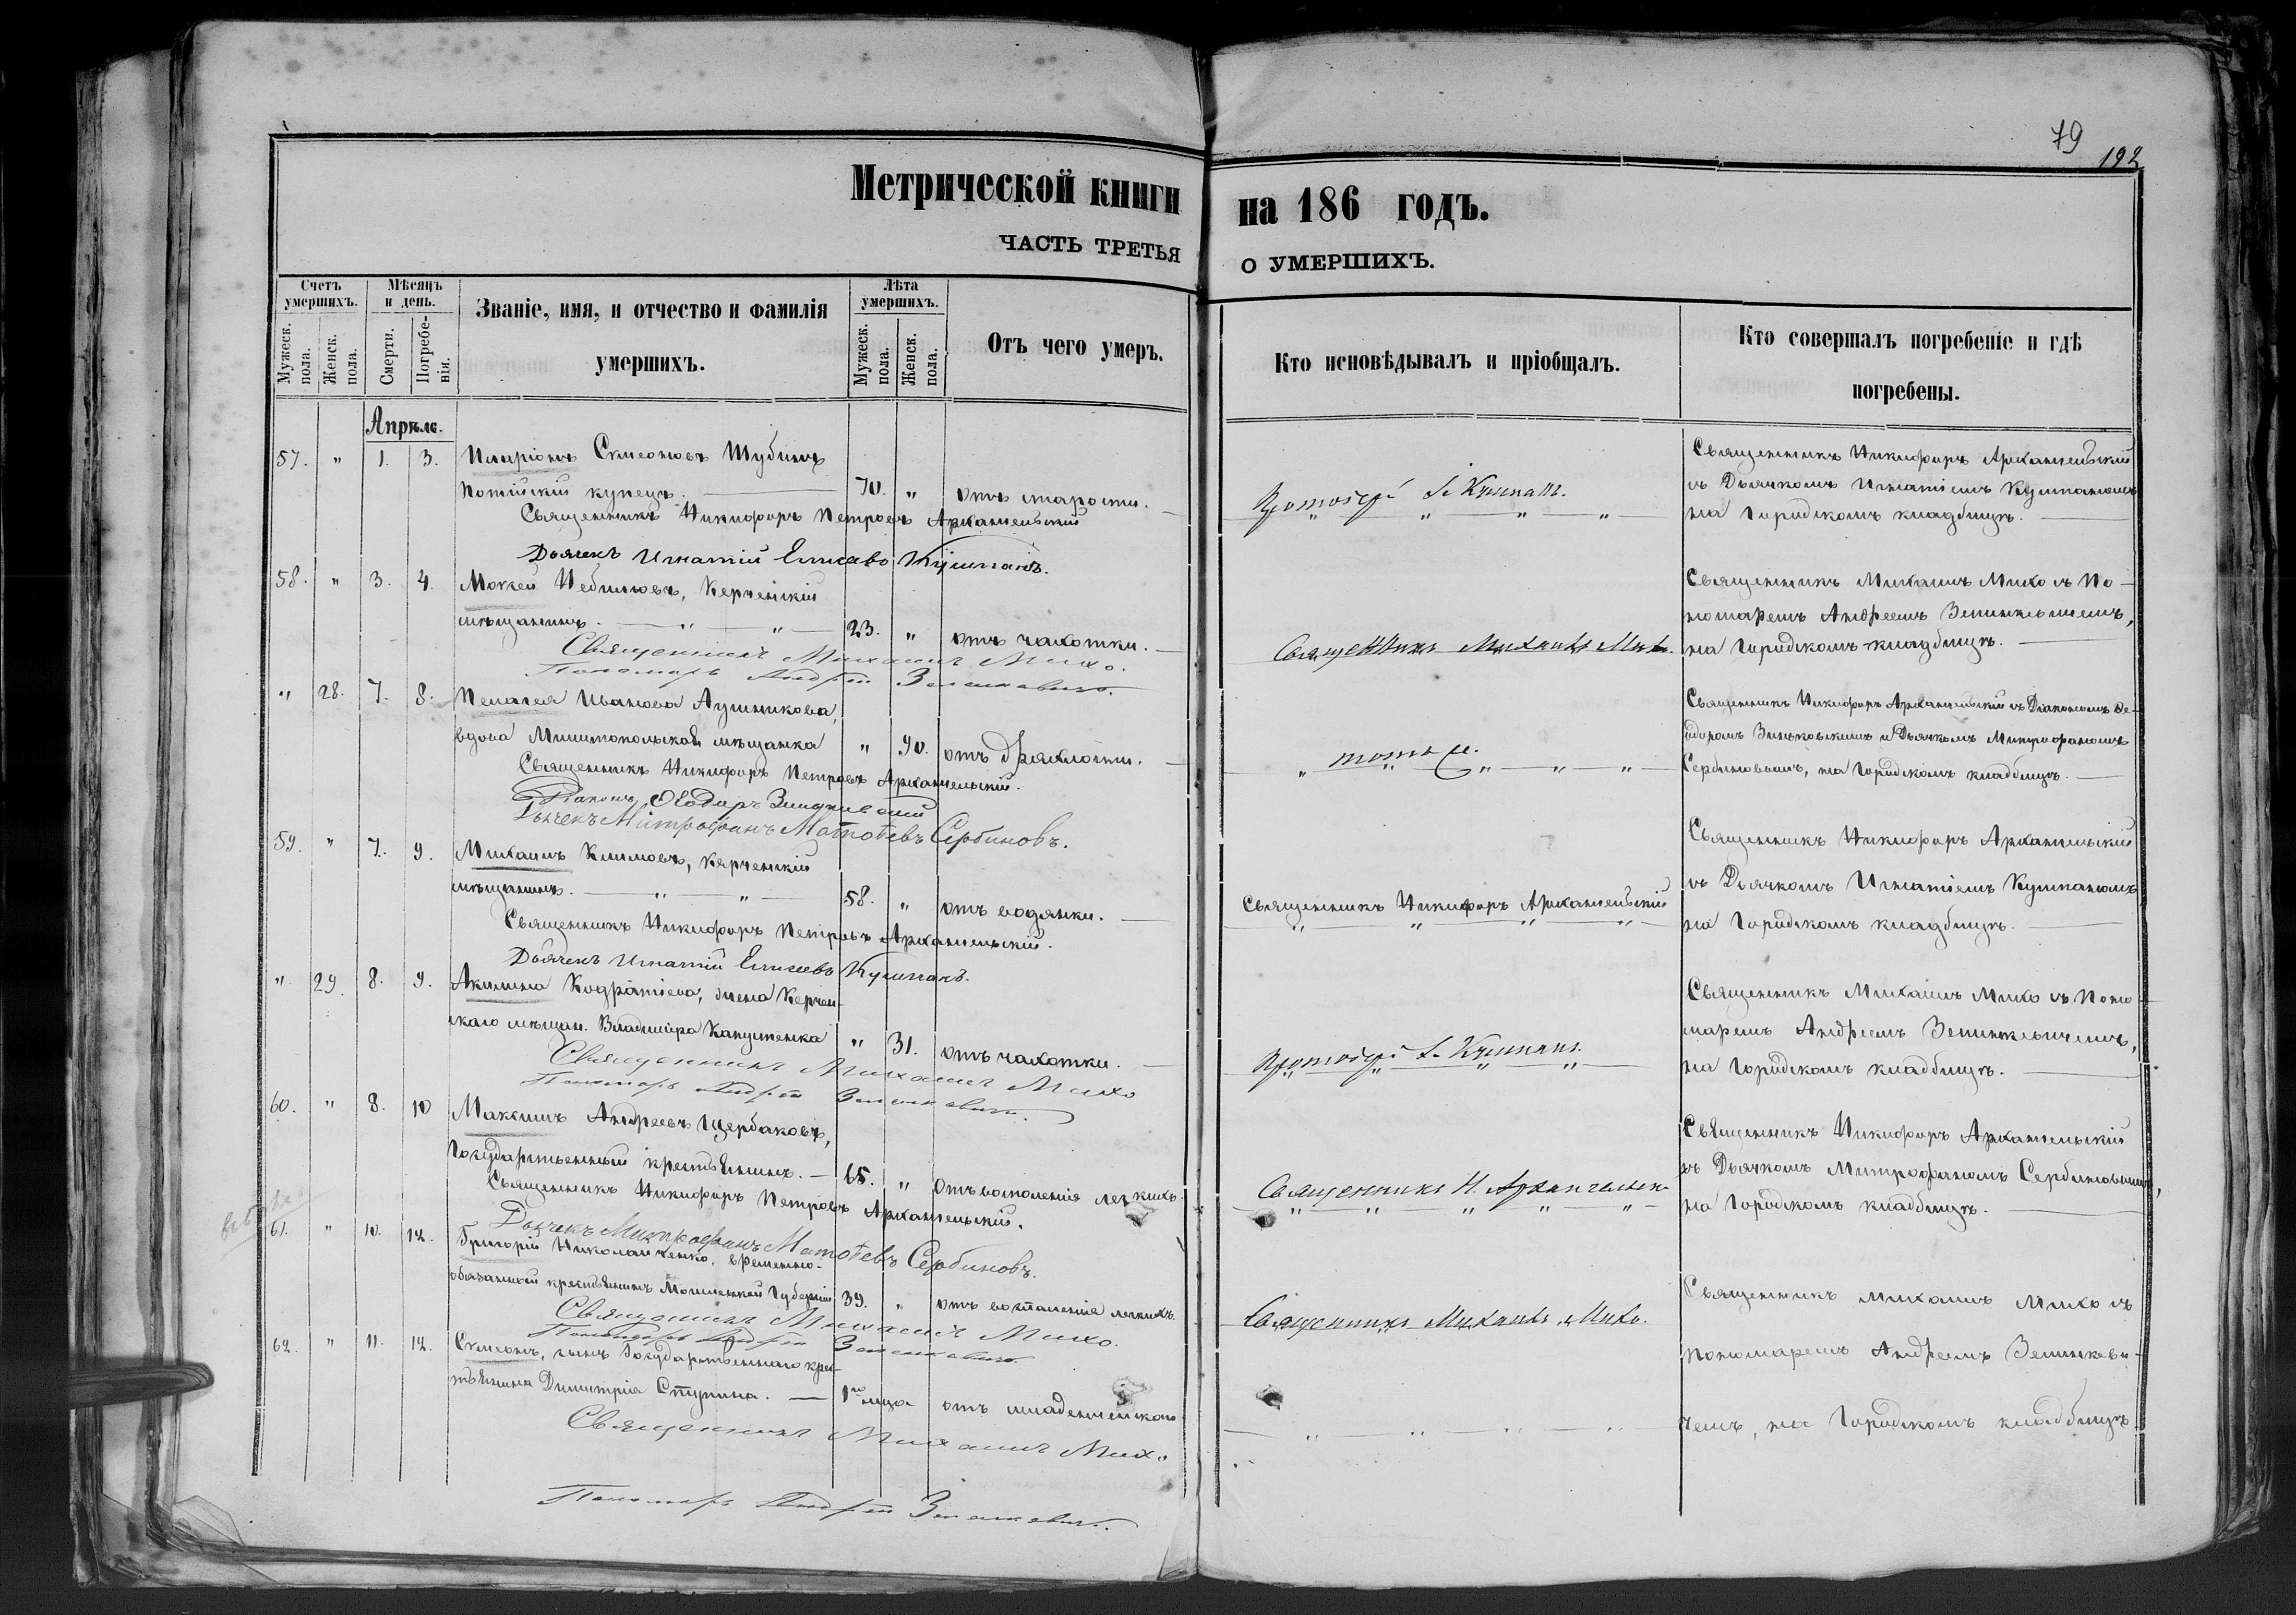 79
192
Метрической книги на 186 годъ.
ЧАСТЬ ТРЕТЬЯ О УМЕРШИХЪ.
Счетъ умершихъ.
Мужеск. пола.
Женск. пола.
Мѣсяцъ и день.
Смерти.
Погребенія.
Званіе, имя, и отчество и фамилія умершихъ.
Лѣта умершихъ.
Мужеск. пола.
Женск. пола.
Отъ чего умеръ.
Кто исповѣдывалъ и пріобщалъ.
Кто совершалъ погребеніе и гдѣ погребены.
Апрѣле.
57. " 1. 3. Иларіонъ Симеоновъ Шубинъ
купецъ. 70. " отъ старости.
Священникъ Никифоръ Петровъ Архангельскій
Дьячекъ Игнатій Елисеевъ Кушнанъ.
Протоіерей
Священникъ Никифоръ Архангельскій
съ Дьячкомъ Игнатіемъ
на Городскомъ кладбищѣ.
58. " 3. 4. Мокей Небиловъ, Керченскій
мѣщанинъ. 23. " отъ чахотки.
Священникъ Михаилъ Михо.
Пономарь Андрей Зелинкевичъ.
Священникъ Михаилъ Михо.
Священникъ Михаилъ Михо съ По-
номаремъ Андреемъ Зелинкевичемъ,
на Городскомъ кладбищѣ.
" 28. 7. 8. Пелагея Иванова Лушникова,
вдова Мелитопольская мѣщанка " 90. отъ дряхлости.
Священникъ Никифоръ Петровъ Архангельскій.
Діаконъ Ѳеодоръ Зиньковскій
Дьячекъ Митрофанъ Матѳеевъ Сербиновъ.
" тотъ же " " "
Священникъ Никифоръ Архангельскій съ Діакономъ Ѳе-
одоромъ Зиньковскимъ и Дьячкомъ Митрофаномъ
Сербиновымъ, на Городскомъ кладбищѣ.
59. " 7. 9. Михаилъ Климовъ, Керченскій
мѣщанинъ. 58. " отъ водянки.
Священникъ Никифоръ Петровъ Архангельскій.
Дьячекъ Игнатій Елисеевъ
Священникъ Никифоръ Архангельскій
Священникъ Никифоръ Архангельскій
съ Дьячкомъ Игнатіемъ
на Городскомъ кладбищѣ.
" 29. 8. 9. Акилина Кодратіева, жена Керчен-
скаго мѣщан. Владиміра Капустенка " 31. отъ чахотки.
Священникъ Михаилъ Михо
Пономарь Андрей Зелинкевичъ.
Протоіерей
Священникъ Михаилъ Михо съ Поно-
маремъ Андреемъ Зелинкевичемъ,
на Городскомъ кладбищѣ.
60. " 8. 10 Максимъ Андреевъ Щербаковъ,
Государственный крестьянинъ. 65. " Отъ воспаленія легкихъ.
Священникъ Никифоръ Петровъ Архангельскій.
Дьячекъ Митрофанъ Матѳеевъ Сербиновъ.
Священникъ Н. Архангельск
Священникъ Никифоръ Архангельскій
съ Дьячкомъ Митрофаномъ Сербиновымъ,
на Городскомъ кладбищѣ.
61. " 10. 12. Григорій Николайченко, временно-
обязанный крестьянинъ Губерніи 39. " отъ воспаленія легкихъ.
Священникъ Михаилъ Михо.
Пономарь Андрей Зелинкевичъ.
Священникъ Михаилъ Михо.
Священникъ Михаилъ Михо съ
пономаремъ Андреемъ Зелинкеви-
чемъ, на Городскомъ кладбищѣ.
62. " 11. 12. Симеонъ, сынъ Государственнаго крес-
тьянина Димитрія Ступина. отъ младенческаго
Священникъ Михаилъ Михо
Пономарь Андрей Зелинкевичъ.